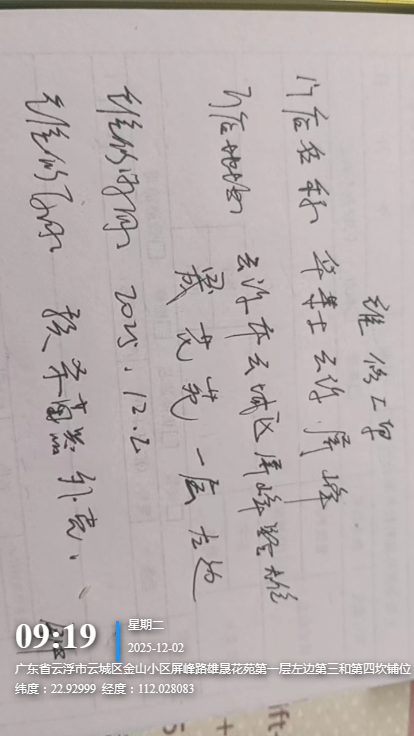 维修工单
门店名称 华莱士云浮屏峰
门店地址 云浮市云城区屏峰路雄
晟花苑一层左边
维修时间 2025.12.2
维修
09:19
星期二
2025-12-02
广东省云浮市云城区金山小区屏峰路雄晟花苑第一层左边第三和第四坎铺位
纬度：22.92999 经度：112.028083
ift-
+
5